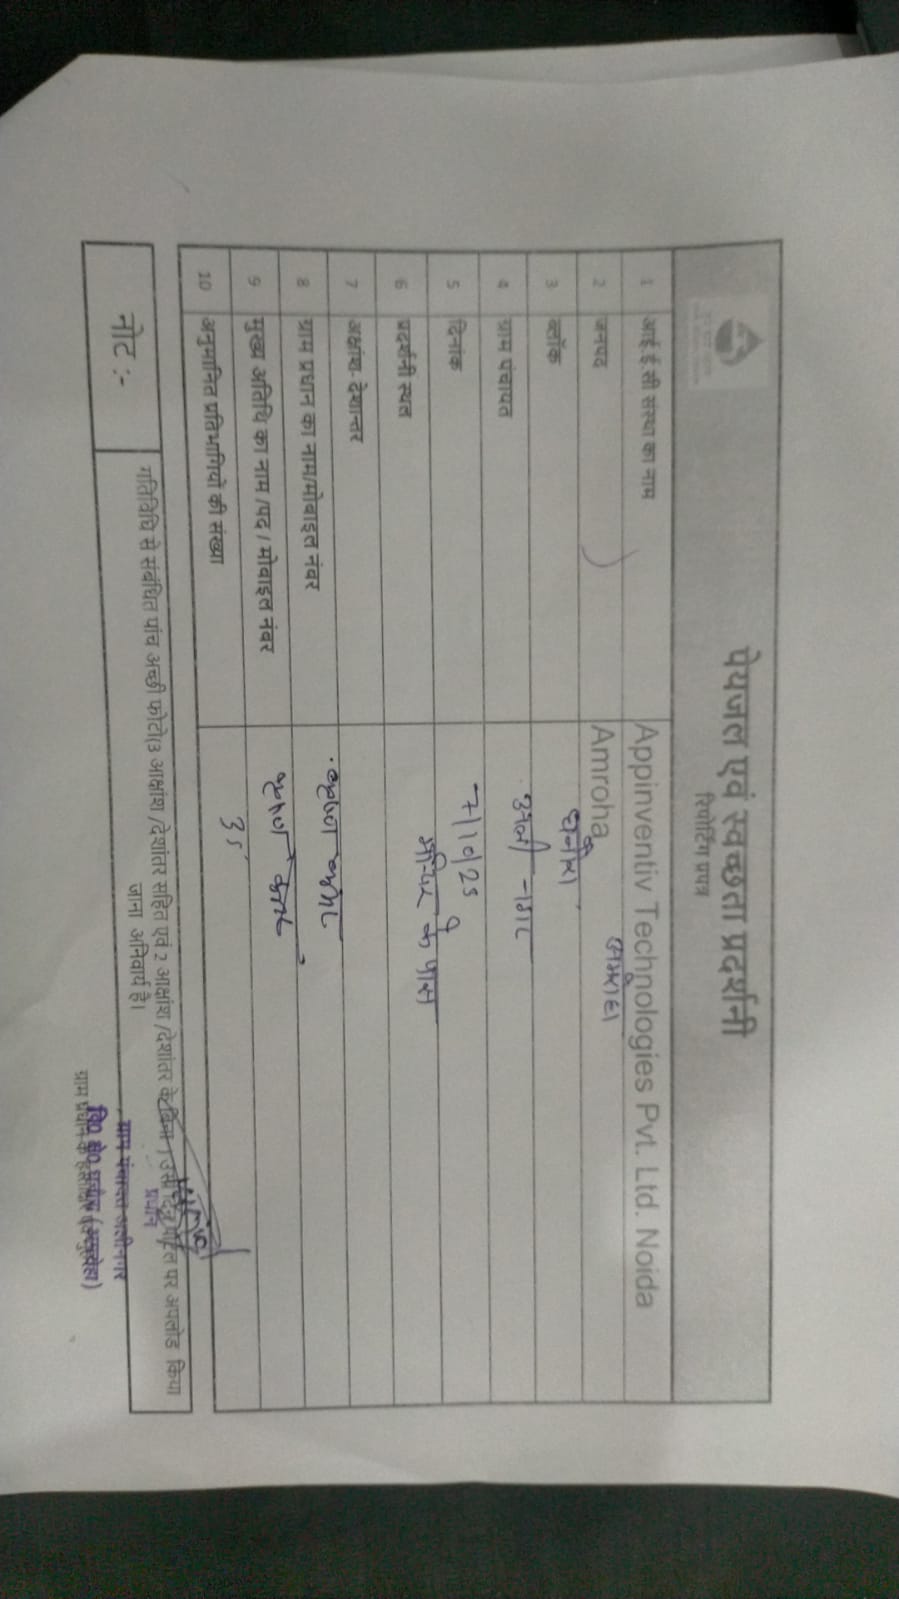 पेयजल एवं स्वच्छता प्रदर्शनी
रिपोर्टिंग प्रपत्र
1 आई ई सी संस्था का नाम Appinventiv Technologies Pvt. Ltd. Noida
2 जनपद Amroha अमरोहा
3 ब्लॉक
4 ग्राम पंचायत अली नगर
5 दिनांक 7/10/25
6 प्रदर्शनी स्थल मन्दिर के पास
7 अक्षांश- देशान्तर
8 ग्राम प्रधान का नाम/मोबाइल नंबर
9 मुख्य अतिथि का नाम /पद / मोबाइल नंबर
10 अनुमानित प्रतिभागियो की संख्या 35
नोट :- गतिविधि से संबंधित पांच अच्छी फोटो(3 आक्षांश /देशांतर सहित एवं 2 आक्षांश /देशांतर के बिना ) उसी दिन पोर्टल पर अपलोड किया
जाना अनिवार्य है।
प्रधान
ग्राम पंचायत अलीनगर